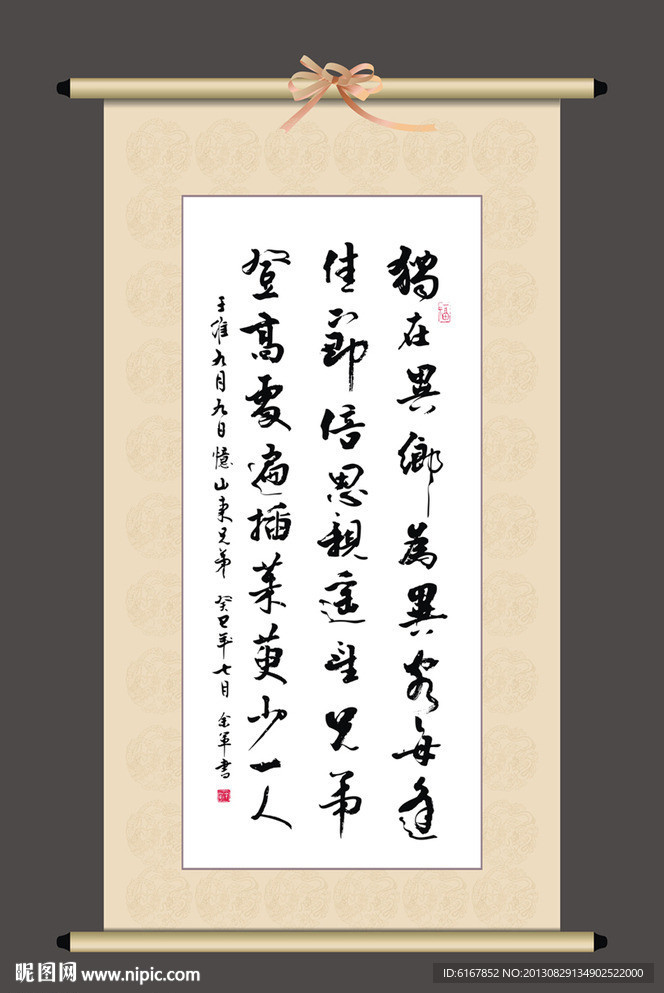 獨在異鄉為異客每逢
佳節倍思親遥望兄弟
登高處遍插茱萸少一人
王維九月九日憶山東兄弟 癸巳年七月 軍書
昵图网 www.nipic.com
ID:6167852 NO:20130829134902522000